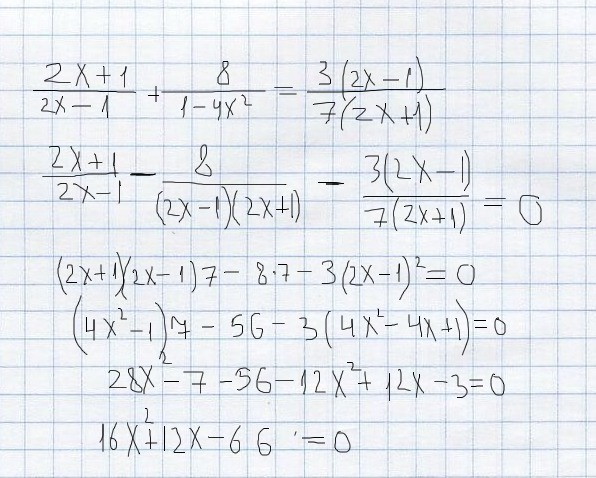 (2x+1)/(2x-1) + 8/(1-4x²) = 3(2x-1)/7(2x+1)
(2x+1)/(2x-1) - 8/(2x-1)(2x+1) - 3(2x-1)/7(2x+1) = 0
(2x+1)(2x-1)7 - 8·7 - 3(2x-1)² = 0
(4x²-1)7 - 56 - 3(4x²-4x+1)=0
28x²-7-56-12x²+12x-3=0
16x²+12x-66=0